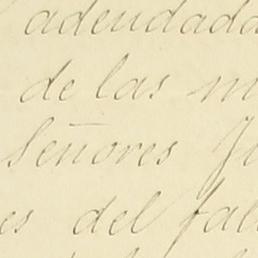 adeudada
de las m
Señores J
es del fal